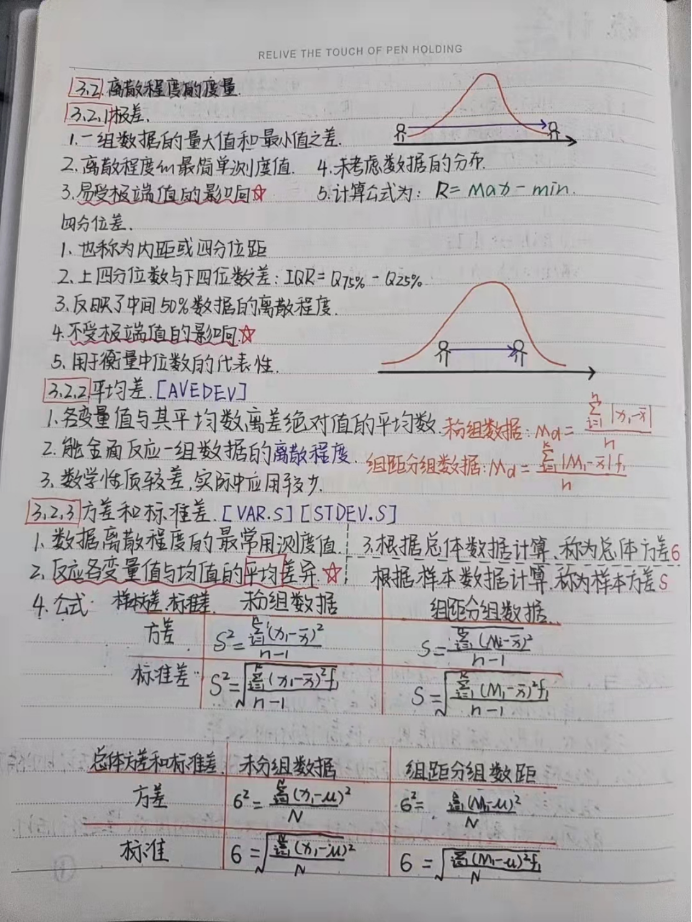 RELIVE THE TOUCH OF PEN HOLDING
3.2 离散程度的度量.
3.2.1 极差.
1.一组数据的量大值和最小值之差.
2.离散程度的最简单测度值. 4.未考虑数据的分布.
3.易受极端值的影响☆ 5.计算公式为: R=max-min.
四分位差.
1.也称为内距或四分位距
2.上四分位数与下四位数差:IQR=Q75%-Q25%
3.反映了中间50%数据的离散程度.
4.不受极端值的影响.☆
5.用于衡量中位数的代表性.
3.2.2 平均差.[AVEDEV]
1.各变量值与其平均数离差绝对值的平均数.未分组数据:Md=∑|x₁-x̄|/n
2.能全面反应一组数据的离散程度. 组距分组数据:Md=∑|M₁-x̄|f₁/n
3.数学性质较差.实际中应用较少.
3.2.3 方差和标准差.[VAR.S][STDEV.S]
1.数据离散程度的最常用测度值. 3.根据总体数据计算.称为总体方差6
2.反应各变量值与均值的平均差异☆ 根据样本数据计算.称为样本方差S
4.公式. 标准差. 未分组数据 组距分组数据.
方差 S²=∑(x₁-x̄)²/n-1 S=∑(M₁-x̄)²/n-1
标准差 S²=√∑(x₁-x̄)²f₁/n-1 S=√∑(M₁-x̄)²f₁/n-1
总体方差和标准差. 未分组数据 组距分组数距
方差 6²=∑(x₁-μ)²/N 6²=∑(M₁-μ)²/N
标准 6=√∑(x₁-μ)²/N 6=√∑(M₁-μ)²f₁/N